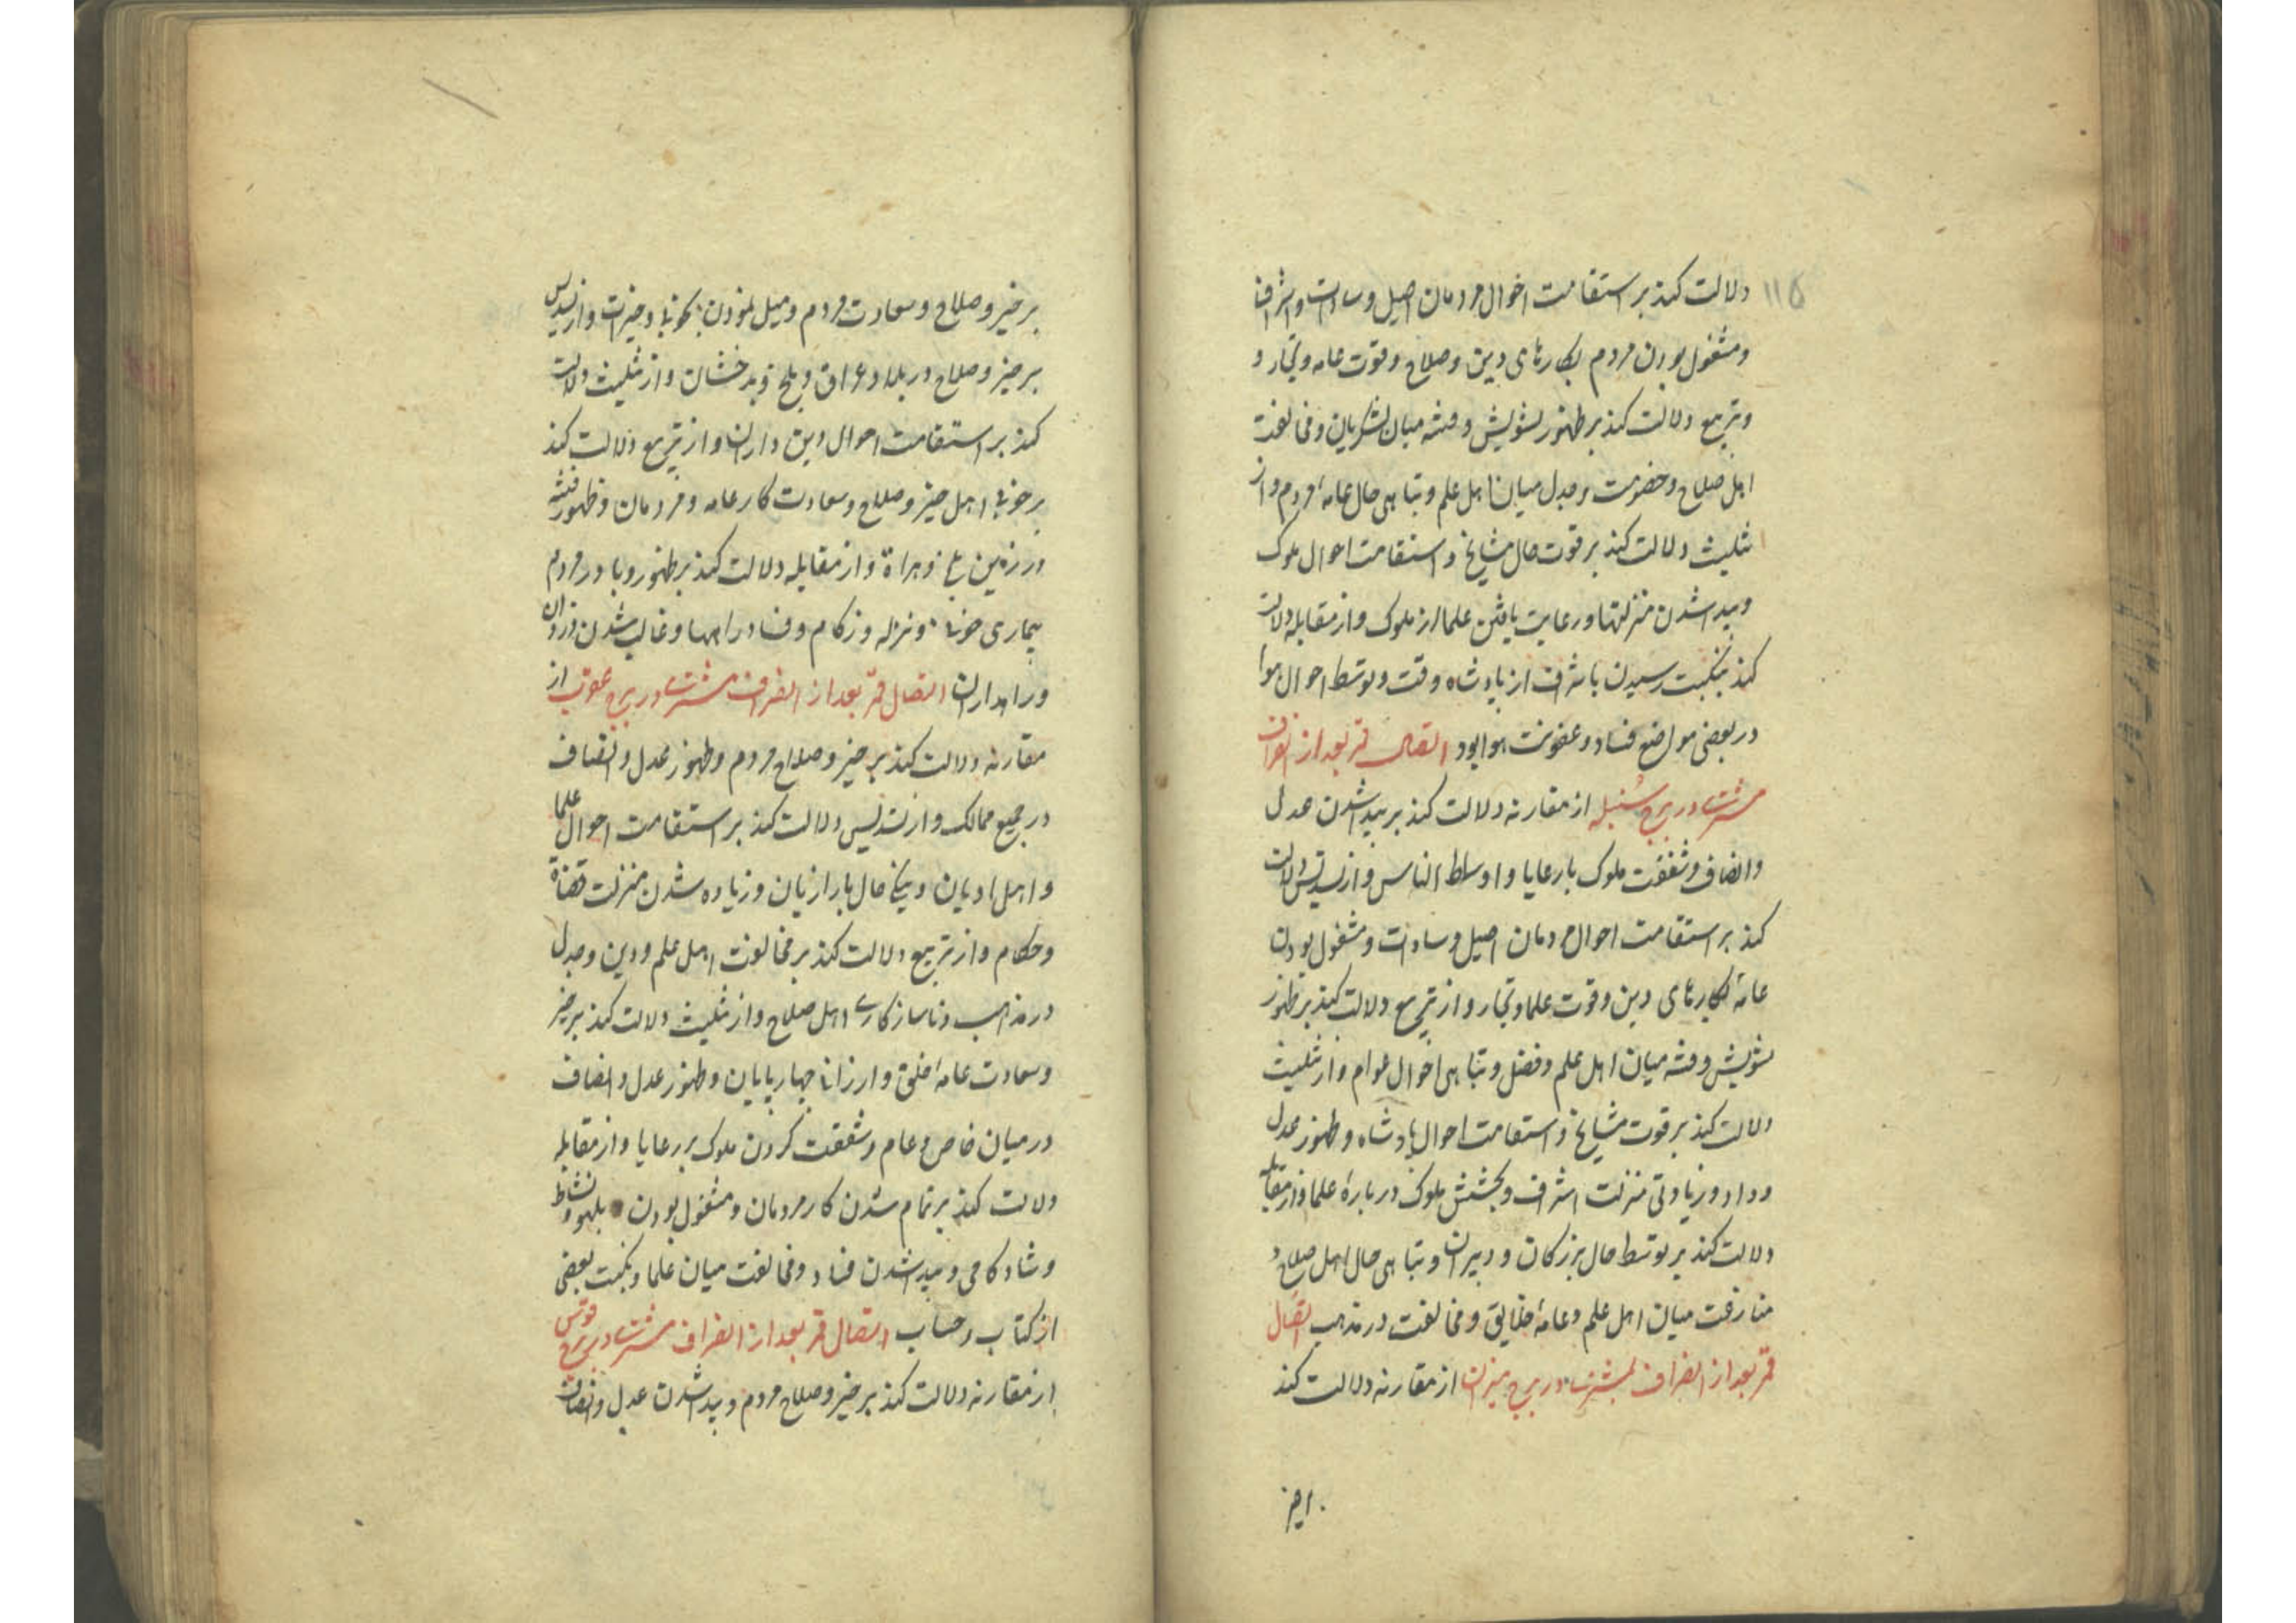 ۱۱۵
دلالت کند بر استقامت احوال مردمان اصیل و سادات و اشراف
و مشغول بودن مردم بکارهای دین و صلاح و قوت عامه و تجار و
و تربیع دلالت کند بر ظهور تشویش و فتنه میان لشکریان و مخالفت
اهل صلاح و خصومت و جدل میان اهل علم و تباهی حال عامهٔ مردم و از
تثلیث دلالت کند بر قوت حال مشایخ و استقامت احوال ملوک
و پیدا شدن منزلتها و رعایت یافتن علما از ملوک و از مقابله دلالت
کند بنکبت رسیدن باشراف از پادشاه وقت و توسط احوال هوا
در بعضی مواضع فساد و عفونت هوا بود اتصال قمر بعد از انصراف
مشتری در برج سنبله از مقارنه دلالت کند بر پیدا شدن عدل
و انصاف و شفقت ملوک با رعایا و اوساط الناس و از تسدیس دلالت
کند بر استقامت احوال مردمان اصیل و سادات و مشغول بودن
عامهٔ بکارهای دین و قوت علما و تجار و از تربیع دلالت کند بر ظهور
تشویش و فتنه میان اهل علم و فضل و تباهی احوال عوام و از تثلیث
دلالت کند بر قوت مشایخ و استقامت احوال پادشاه و ظهور عدل
و داد و زیادتی منزلت اشراف و بخشش ملوک در بارهٔ علما و از مقابله
دلالت کند بر توسط حال بزرکان و دبیران و تباهی حال اهل صلاح و
مفارقت میان اهل علم و عامهٔ خلایق و مخالفت در مذهب اتصال
قمر بعد از انصراف بمشتری در برج میزان از مقارنه دلالت کند
بر خیر
بر خیر و صلاح و سعادت مردم و میل نمودن بنکوئی و خیرات و از تسدیس
بر خیر و صلاح در بلاد عراق و بلخ و بدخشان و از تثلیث دلالت
کند بر استقامت احوال دین داران و از تربیع دلالت کند
بر خوبی اهل خیر و صلاح و سعادت کار عامه و مردمان و ظهور فتنه
در زمین بلخ و هراة و از مقابله دلالت کند بر ظهور وبا در مردم
بیماری خونی و نزله و زکام و فساد راهها و غالب شدن دزدان
و راهداران اتصال قمر بعد از انصراف مشتری در برج عقرب از
مقارنه دلالت کند بر خیر و صلاح مردم و ظهور عدل و انصاف
در جمیع ممالک و از تسدیس دلالت کند بر استقامت احوال علما
و اهل ادیان و نیکی حال بازاریان و زیاده شدن منزلت قضاة
و حکام و از تربیع دلالت کند بر مخالفت اهل علم و دین و جدل
در مذاهب و ناسازکاری اهل صلاح و از تثلیث دلالت کند بر خیر
و سعادت عامهٔ خلق و ارزانی چهارپایان و ظهور عدل و انصاف
در میان خاص و عام و شفقت کردن ملوک بر رعایا و از مقابله
دلالت کند بر تمام شدن کار مردمان و مشغول بودن بلهو و نشاط
و شادکامی و پیدا شدن فساد و مخالفت میان علما و نکبت بعضی
از کتاب و حساب اتصال قمر بعد از انصراف مشتری در برج قوس
از مقارنه دلالت کند بر خیر و صلاح مردم و پیدا شدن عدل و انصاف